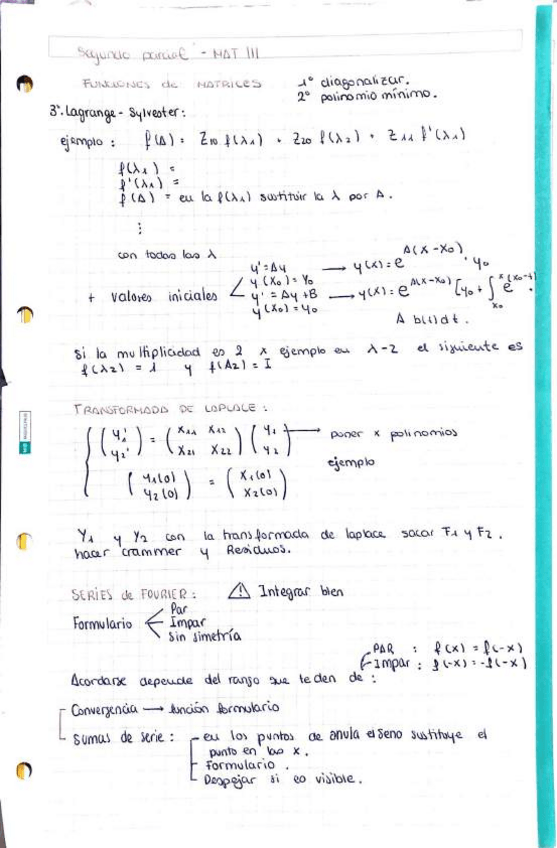 Segundo parcial - MAT III
FUNCIONES de MATRICES
1º diagonalizar.
2º polinomio mínimo.
3º. Lagrange - Sylvester:
ejemplo : f(A) = Z10 f(λ1) + Z20 f(λ2) + Z11 f'(λ1)
f(λ1) =
f'(λ1) =
f(A) = en la f(λ1) sustituir la λ por A.
⋮
con todas las λ
+ valores iniciales
y' = Ay
y(x0) = y0
→ y(x) = e^A(x-x0) · y0
y' = Ay + B
y(x0) = y0
→ y(x) = e^A(x-x0) [y0 + ∫ x0 x e^(x0-t) ·
A b(t) dt.
Si la multiplicidad es 2 x ejemplo en λ-2 el siguiente es
f(λ2) = 1 y f(A2) = I
TRANSFORMADA DE LAPLACE :
{ (y1' y2') = (x11 x12 x21 x22) (y1 y2) → poner x polinomios
ejemplo
(y1(0) y2(0)) = (x1(0) x2(0))
Y1 y Y2 con la transformada de laplace sacar F1 y F2.
hacer crammer y Residuos.
SERIES de FOURIER : ⚠ Integrar bien
Formulario
Par
Impar
Sin simetría
PAR : f(x) = f(-x)
Impar : f(-x) = -f(-x)
Acordarse depende del rango que te den de :
Convergencia → función formulario
Sumas de serie :
en los puntos de anula el seno sustituye el
punto en las x.
Formulario .
Despejar si es visible.